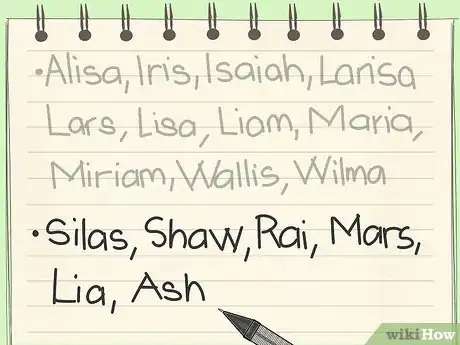 •Alisa, Iris, Isaiah, Larisa
Lars, Lisa, Liam, Maria,
Miriam, Wallis, Wilma
•Silas, Shaw, Rai, Mars,
Lia, Ash
wikiHow